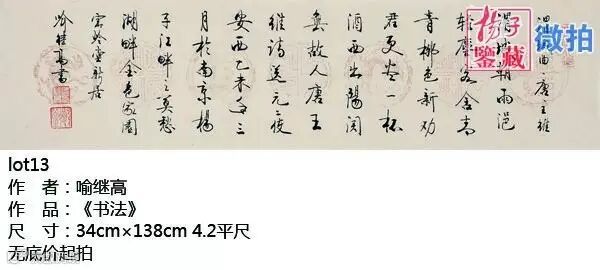 渭城曲·唐王維
渭城朝雨浥
轻塵客舍青
青柳色新劝
君更尽一杯
酒西出陽関
無故人唐王
維詩送元二使
安西乙未年三
月於南京楊
子江畔之莫愁
湖畔金色家園
堂新居
喻继高書
杨子鉴藏
微拍
lot13
作 者：喻继高
作 品：《书法》
尺 寸：34cm×138cm 4.2平尺
无底价起拍